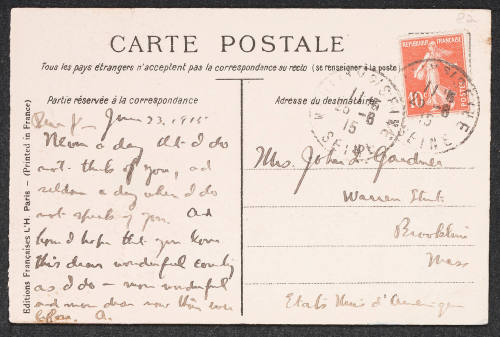 22
CARTE POSTALE
Tous les pays étrangers n'acceptent pas la correspondance au recto (se renseigner à la poste)
Partie réservée à la correspondance
Adresse du destinataire
RÉPUBLIQUE FRANÇAISE
10c
POSTES
SEINE
June 23. 1915
Never a day that I do
not think of you, and
seldom a day when I do
not speak of you. And
how I hope that you love
this dear wonderful country
as I do — more wonderful
and more dear now than ever
before. A.
Mrs. John L. Gardner
Warren Street
Brookline
Mass
Etats Unis d'Amérique
Editions Françaises L'H Paris - (Printed in France)